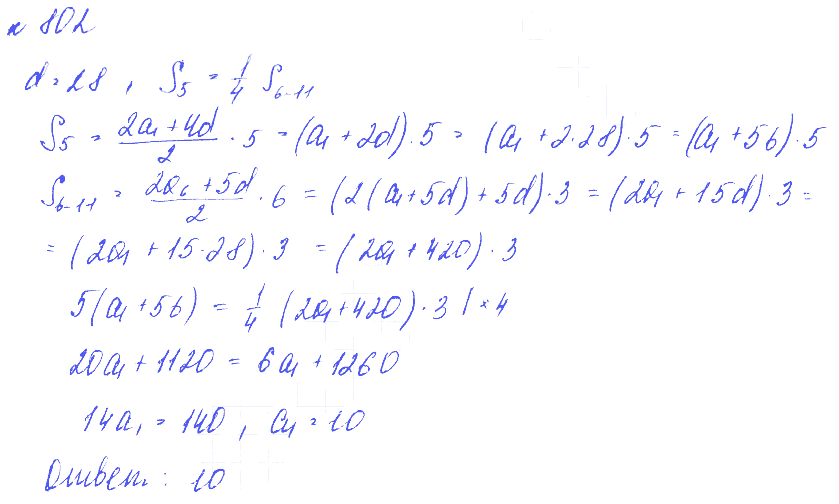 № 802
d = 28 , S₅ = 1/4 S₆₋₁₁
S₅ = (2a₁ + 4d)/2 · 5 = (a₁ + 2d) · 5 = (a₁ + 2·28) · 5 = (a₁ + 56) · 5
S₆₋₁₁ = (2a₆ + 5d)/2 · 6 = (2(a₁ + 5d) + 5d) · 3 = (2a₁ + 15d) · 3 =
= (2a₁ + 15·28) · 3 = (2a₁ + 420) · 3
5(a₁ + 56) = 1/4 (2a₁ + 420) · 3 | × 4
20a₁ + 1120 = 6a₁ + 1260
14a₁ = 140 , a₁ = 10
Ответ : 10